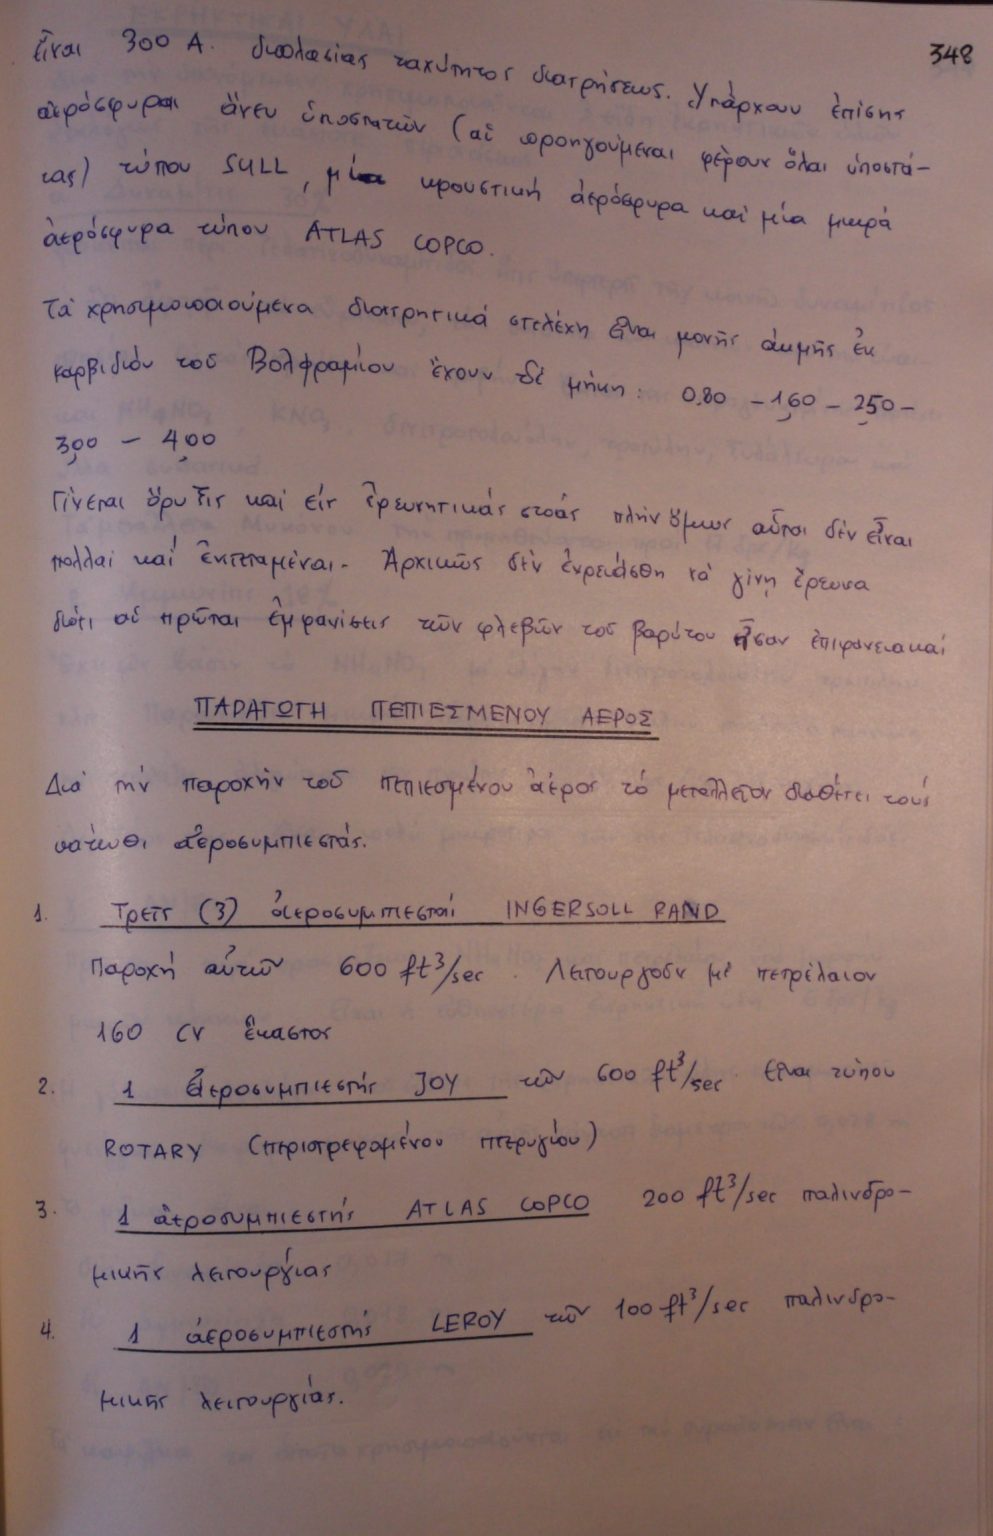 348
εἶναι 300 Α. διπλασίας ταχύτητος διατρήσεως. Ὑπάρχουν ἐπίσης
ἀερόσφυραι ἄνευ ὑποστατῶν (αἱ προηγούμεναι φέρουν ὅλαι ὑποστά-
τας) τύπου SULL, μία κρουστική ἀερόσφυρα καί μία μικρά
ἀερόσφυρα τύπου ATLAS COPCO.
Τά χρησιμοποιούμενα διατρητικά στελέχη εἶναι μονῆς ἀκμῆς ἐκ
καρβιδίου τοῦ Βολφραμίου ἔχουν δέ μήκη: 0,80 - 1,60 - 2,50 -
3,00 - 4,00
Γίνεται ὄρυξις καί εἰς ἐρευνητικάς στοάς πλήν ὅμως αὗται δέν εἶναι
πολλαί καί ἐκτεταμέναι. Ἀρχικῶς δέν ἐχρειάσθη νά γίνῃ ἔρευνα
διότι αἱ πρῶται ἐμφανίσεις τῶν φλεβῶν τοῦ βαρύτου ἦσαν ἐπιφανειακαί
ΠΑΡΑΓΩΓΗ ΠΕΠΙΕΣΜΕΝΟΥ ΑΕΡΟΣ
Διά τήν παροχήν τοῦ πεπιεσμένου ἀέρος τό μεταλλεῖον διαθέτει τούς
κάτωθι ἀεροσυμπιεστάς.
1. Τρεῖς (3) ἀεροσυμπιεσταί INGERSOLL RAND
Παροχή αὐτῶν 600 ft³/sec. Λειτουργοῦν μέ πετρέλαιον
160 CV ἕκαστος
2. 1 ἀεροσυμπιεστής JOY τῶν 600 ft³/sec. Εἶναι τύπου
ROTARY (περιστρεφομένου πτερυγίου)
3. 1 ἀεροσυμπιεστής ATLAS COPCO 200 ft³/sec παλινδρο-
μικῆς λειτουργίας
4. 1 ἀεροσυμπιεστής LEROY τῶν 100 ft³/sec παλινδρο-
μικῆς λειτουργίας.